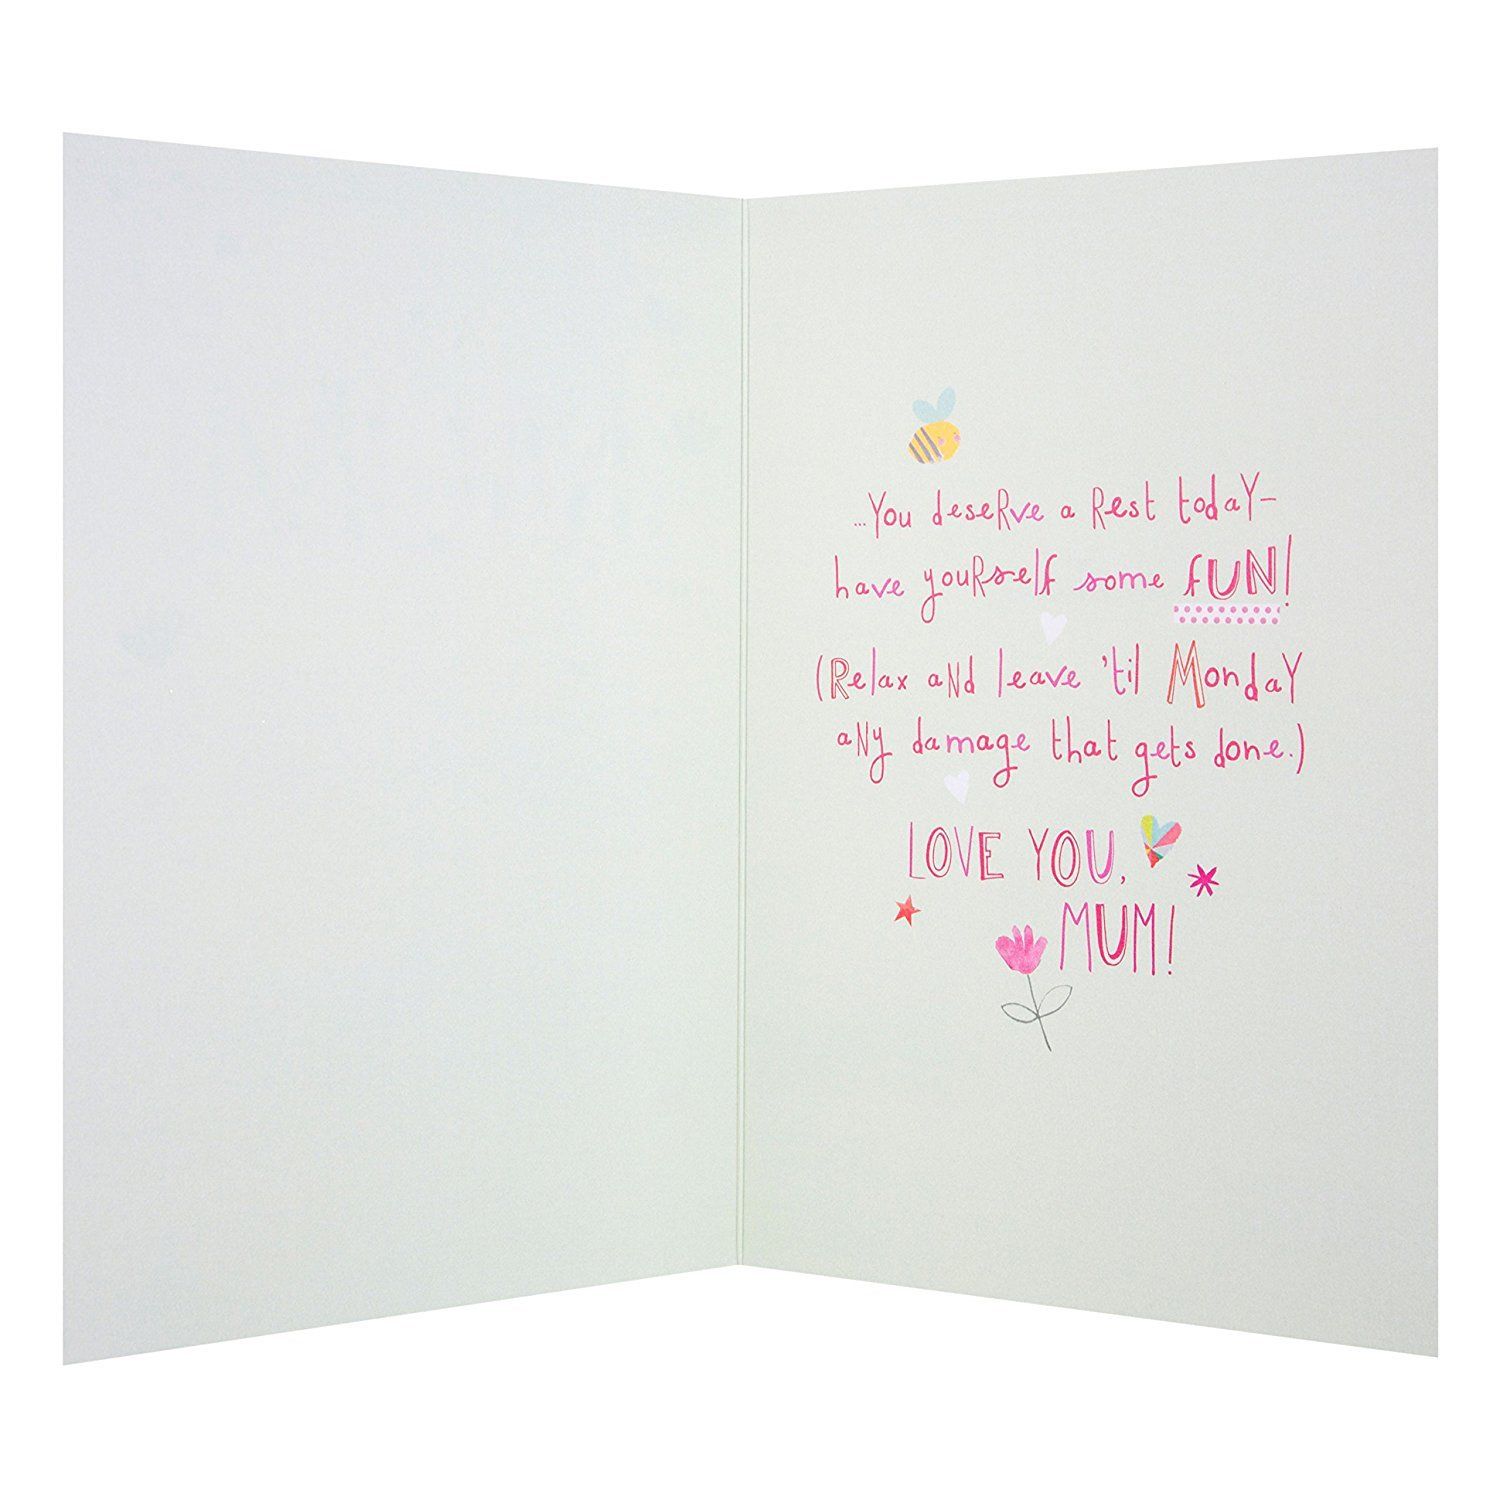 ...You deserve a rest today—
have yourself some FUN!
(Relax and leave 'til Monday
any damage that gets done.)
LOVE YOU,
MUM!